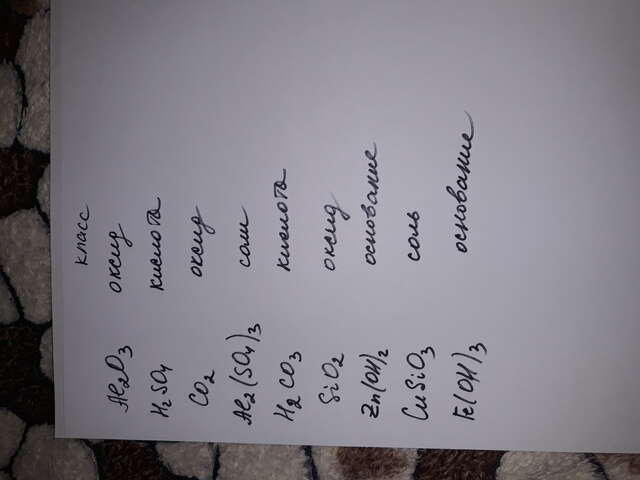 класс
Al₂O₃ оксид
H₂SO₄ кислота
CO₂ оксид
Al₂(SO₄)₃ соли
H₂CO₃ кислота
SiO₂ оксид
Zn(OH)₂ основание
CuSiO₃ соль
Fe(OH)₃ основание